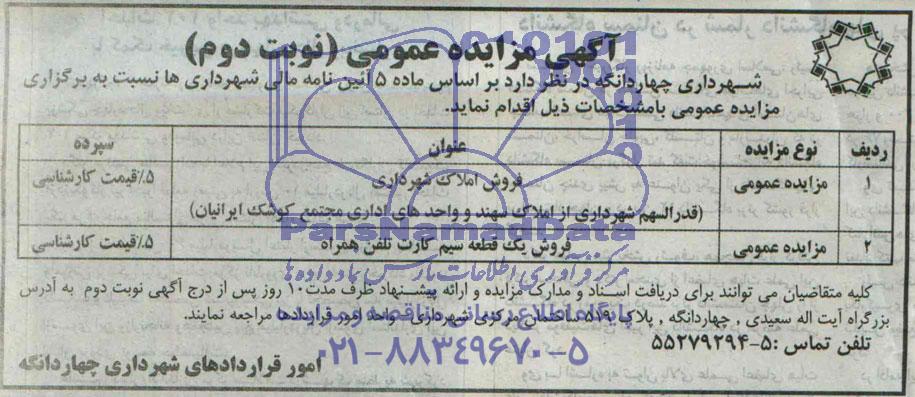 آگهی مزایده عمومی (نوبت دوم)
شهرداری چهاردانگه در نظر دارد بر اساس ماده ۵ آئین نامه مالی شهرداری ها نسبت به برگزاری
مزایده عمومی بامشخصات ذیل اقدام نماید.
ردیف نوع مزایده عنوان سپرده
۱ مزایده عمومی فروش املاک شهرداری ۵٪قیمت کارشناسی
(قدرالسهم شهرداری از املاک سهند و واحد های اداری مجتمع کوشک ایرانیان)
۲ مزایده عمومی فروش یک قطعه سیم کارت تلفن همراه ۵٪قیمت کارشناسی
ParsNamadData
مرکز فرآوری اطلاعات پارس نماد داده ها
کلیه متقاضیان می توانند برای دریافت اسناد و مدارک مزایده و ارائه پیشنهاد ظرف مدت ۱۰ روز پس از درج آگهی نوبت دوم به آدرس
بزرگراه آیت اله سعیدی , چهاردانگه , پلاک ۵۱۹ ساختمان مرکزی شهرداری - واحد امور قراردادها مراجعه نمایند.
پایگاه اطلاع رسانی مناقصه و مزایده
تلفن تماس :۵-۵۵۲۷۹۲۹۴
۰۲۱-۸۸۳۴۹۶۷۰-۵
امور قراردادهای شهرداری چهاردانگه